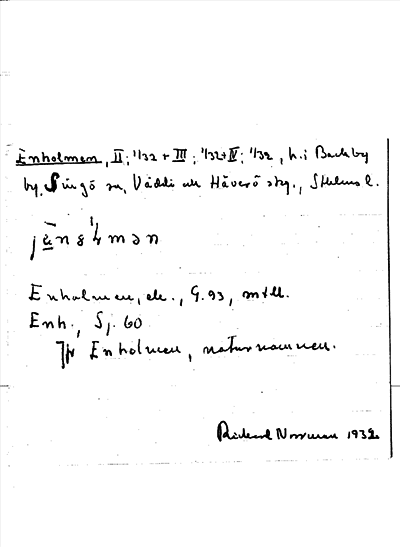 Enholmen, II; 1/32 + III; 1/32 + IV; 1/32, h. i Backby
by, Singö sn, Väddö och Häverö skg., Sthlms l.
Enholmen, ek., G. 93, mtbl.
Enh., Sj. 60
Jfr Enholmen, naturnamnen.
Rickard Norrman 1932